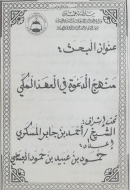 عنوان البحث:
منهج الدعوة في العهد المكي
تحت إشراف:
الشيخ/ أحمد بن جابر المسكري
إعداد:
حمود بن عبيد بن حمود